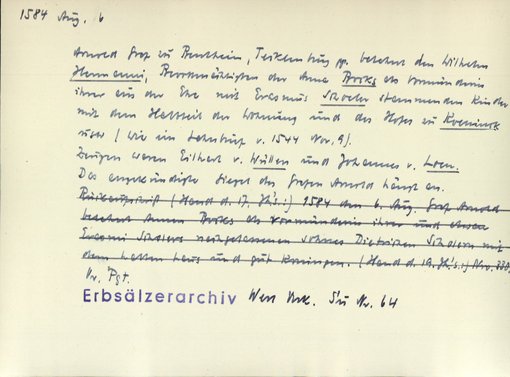 1584 Aug. 6
Arnold Graf zu Bentheim, Tecklenburg pp. belehnt den Wilhelm
Hermanni, Bevollmächtigten der Anna Brocks als Vormünderin
ihrer aus der Ehe mit Erasmus Scholer stammenden Kinder
mit dem Halbteil der Wohnung und des Hofes zu
usw (wie ein Lehnbrief v. 1544 Nov. 9).
Zeugen waren Eilhart v. Wüllen und Johannes v. Loen.
Das angekündigte Siegel des Grafen Arnold hängt an.
Rückaufschrift (Hand d. 17. Jh's:) 1584 den 6. Aug. Graf Arnold
belehnt Annen Brocks als Vormünderin ihrer und
Erasmi Scholers nachgelassenen Sohnes Dietrichen Scholern mit
dem halben haus und gut Koningen. (Hand d. 19. Jh's:) Nro. 330.
Or. Pgt.
Erbsälzerarchiv Werl Urk. Nr. 64